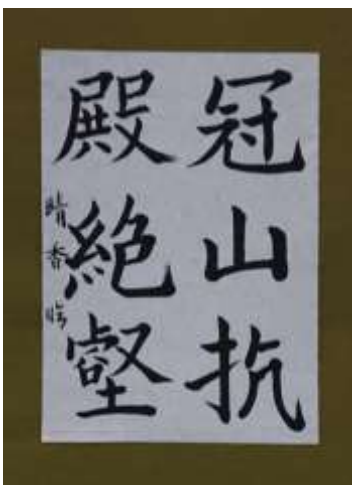 冠山抗
殿絶壑
晴香臨